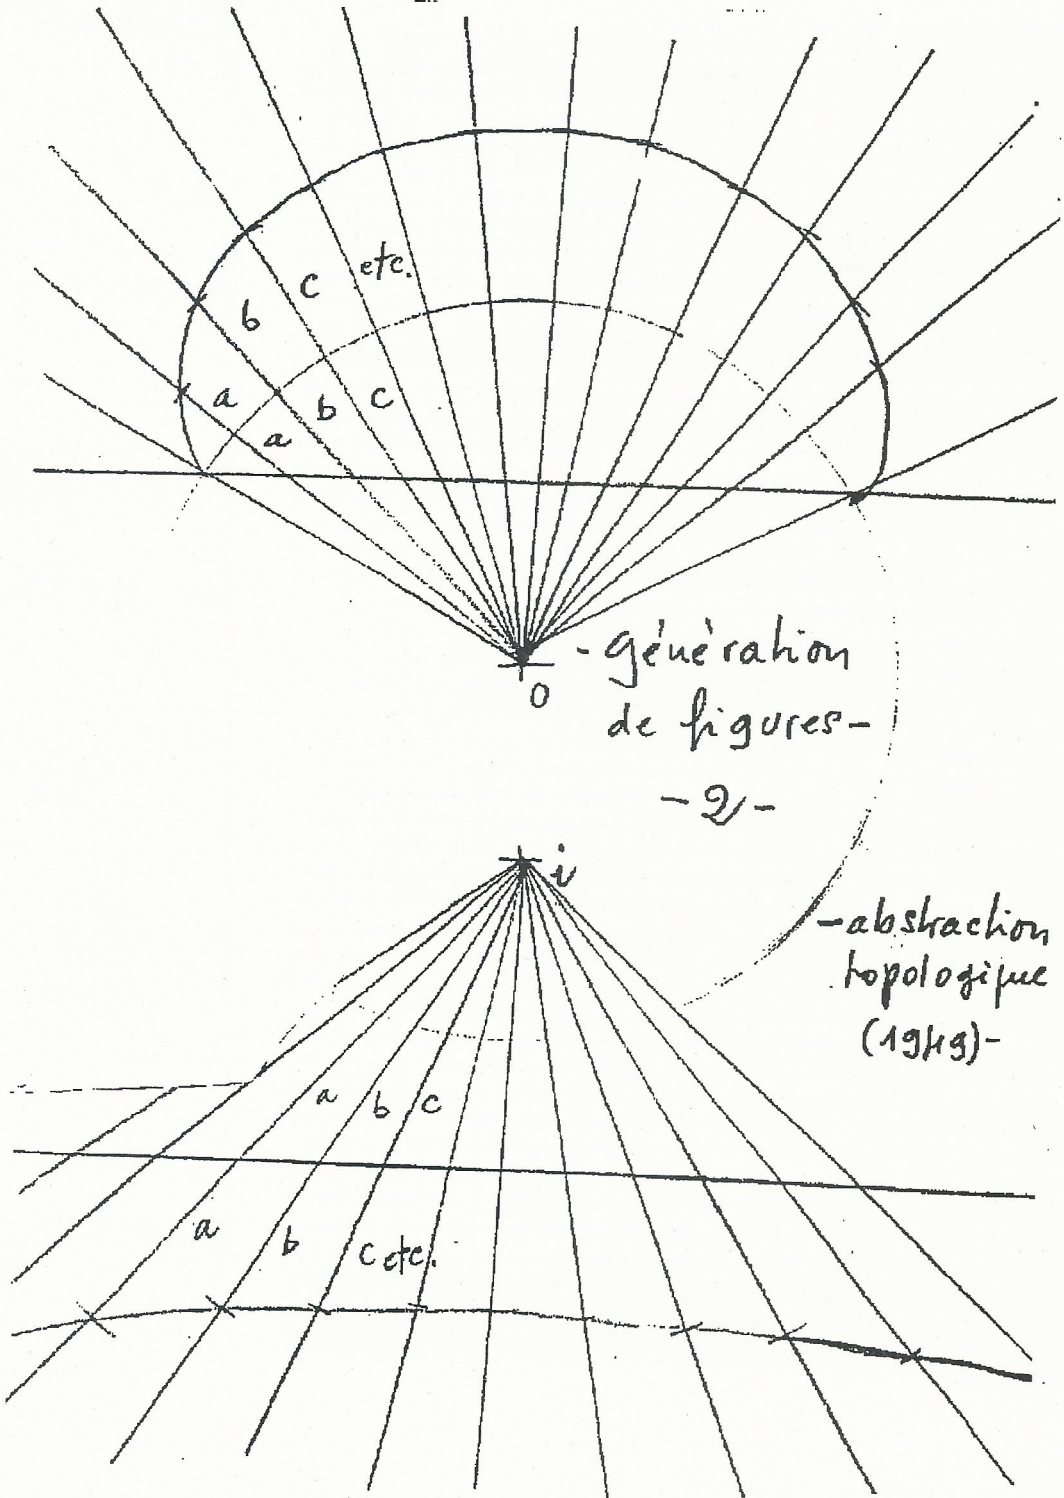 etc.
c
b
a
b
c
a
O
- génération
de figures -
- 2 -
i
- abstraction
topologique
(1949) -
a
b
c
a
b
c etc.